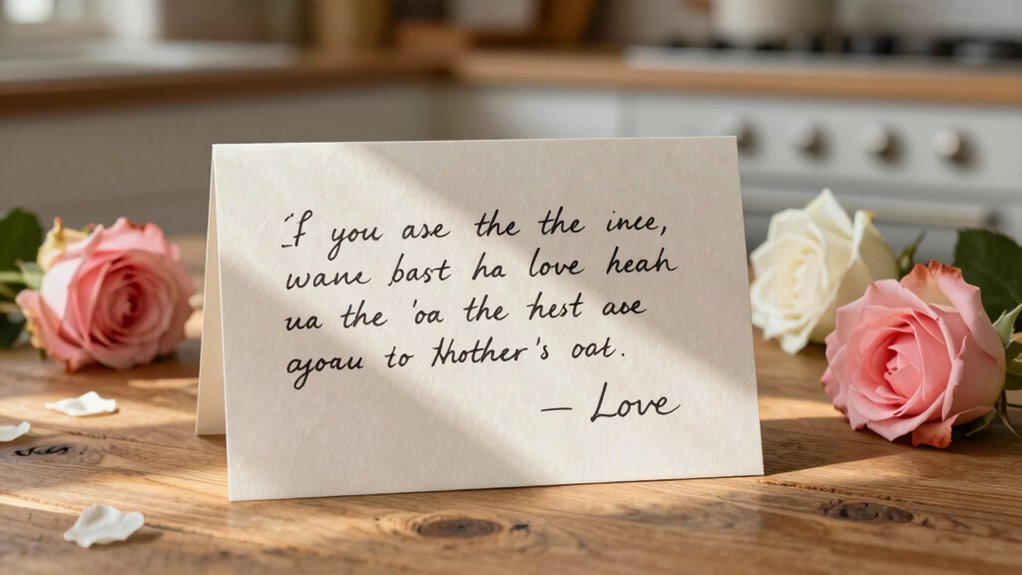 if you ase the the inee,
wane bast ha love heah
ua the 'oa the hest ase
agoau to Mother's oat.
— Love